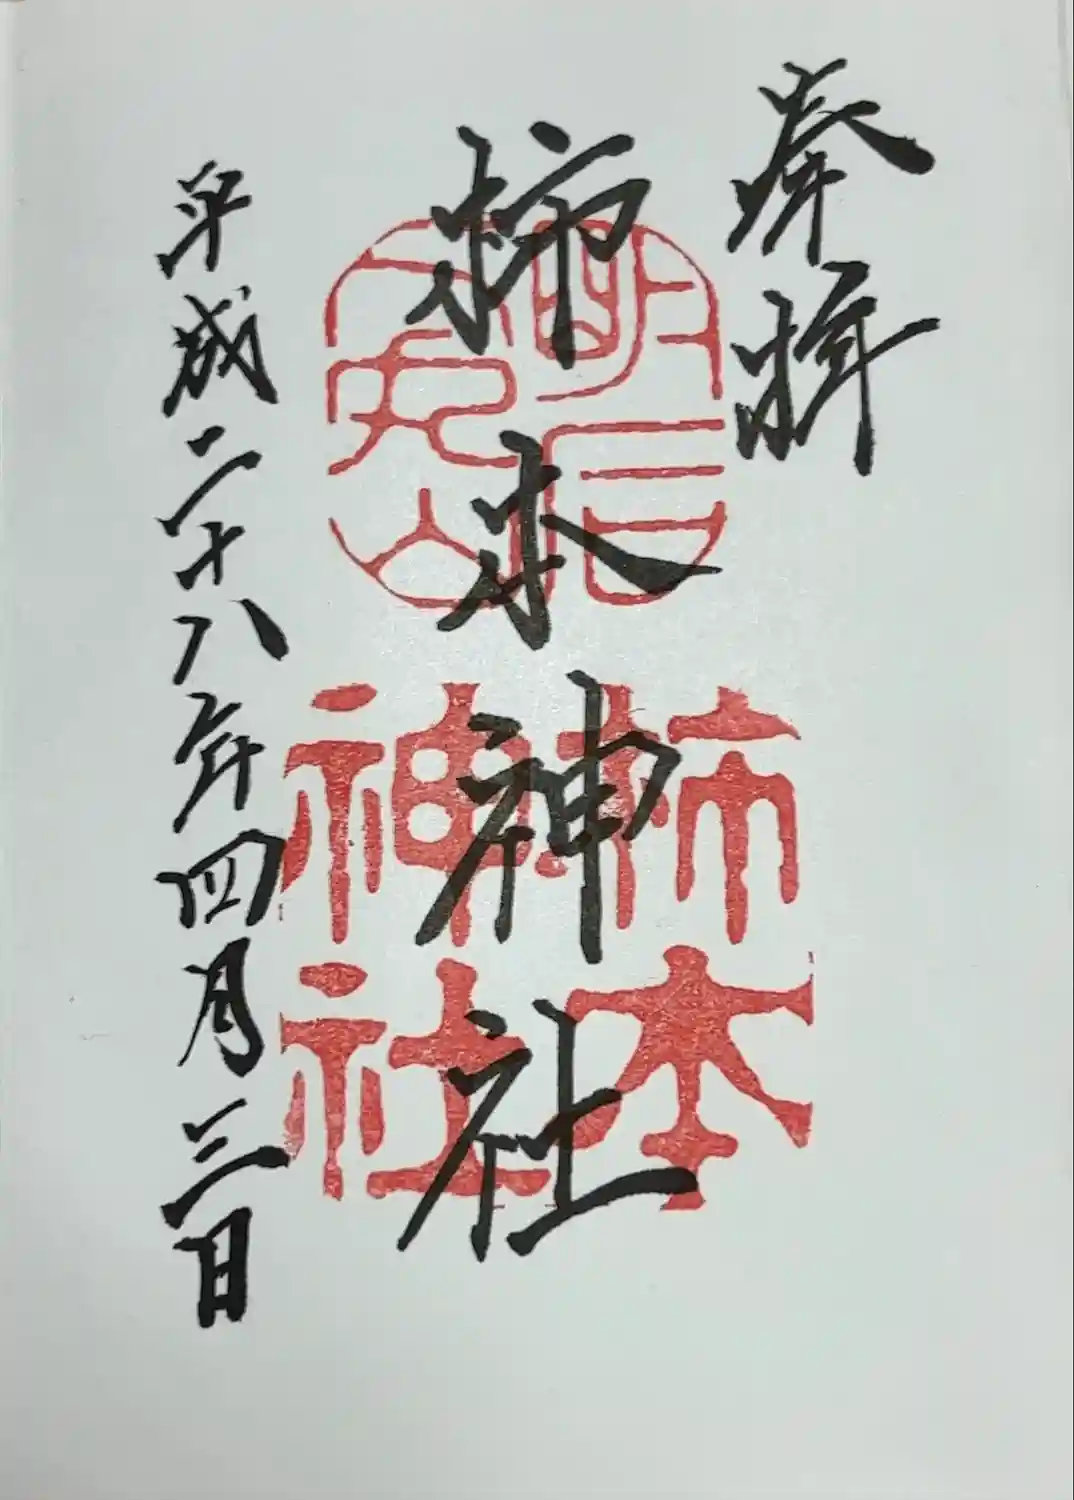 奉拝
柿本神社
平成二十八年四月三日
明石
人丸山
柿本
神社